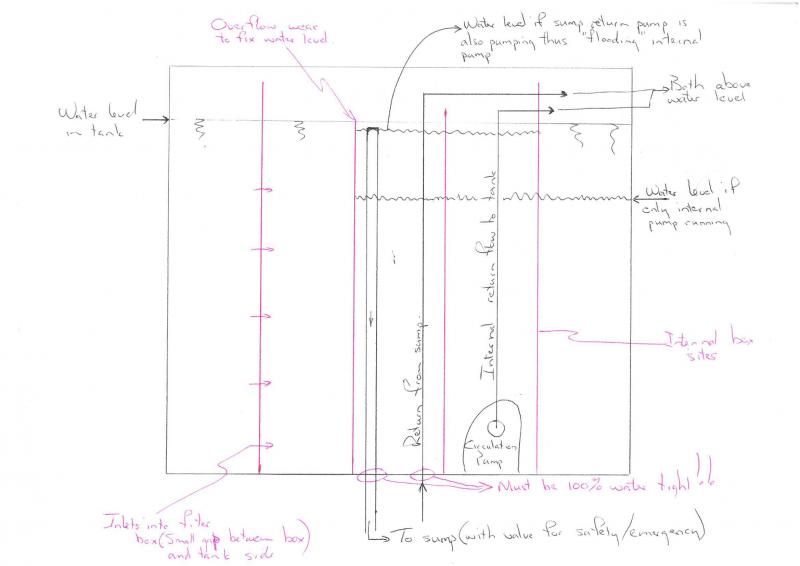 Overflow wear
to fix water level.
Water level if sump return pump is
also pumping thus "flooding" internal
pump
Both above
water level
Water level
in tank
Water level if
only internal
pump running
Internal return flow to tank
Return from sump.
Internal box
sites
Circulation
Pump
Must be 100% water tight!!
Inlets into filter
box (Small gap between box)
and tank side
To sump (with valve for safety/emergency)